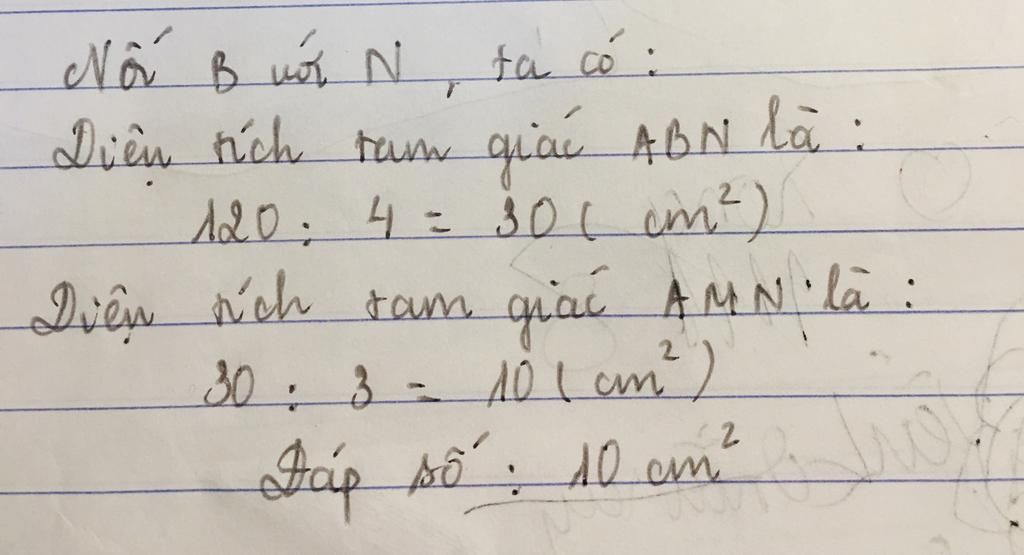 Nối B với N, ta có:
Diện tích tam giác ABN là:
120 : 4 = 30 ( cm²)
Diện tích tam giác AMN là:
30 : 3 = 10 ( cm²)
Đáp số : 10 cm²